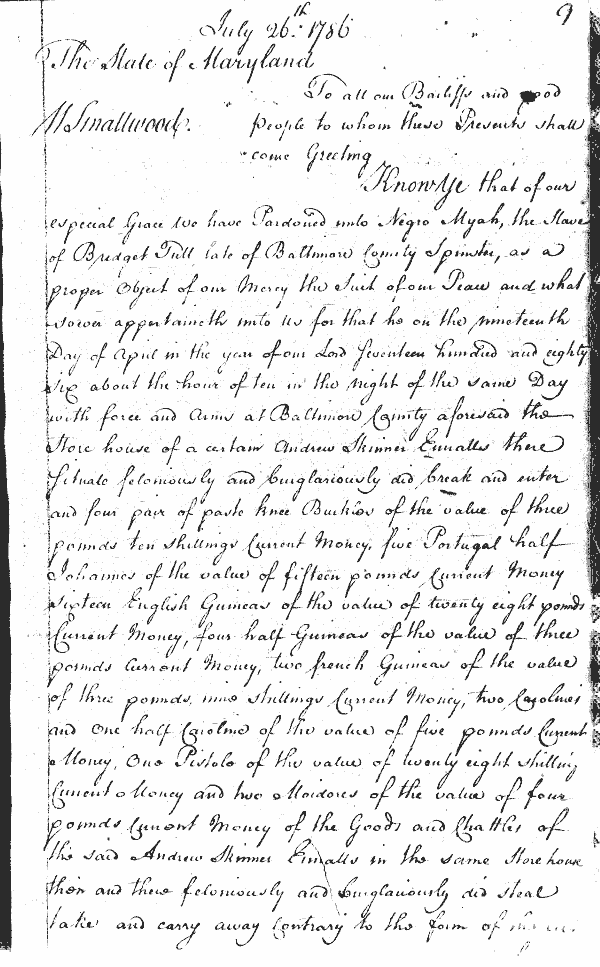 9
July 26th. 1786
The State of Maryland
To all our Bailiffs and good
W Smallwood. people to whom these Presents shall
come Greeting
Know Ye that of our
especial Grace We have Pardoned unto Negro Myah, the Slave
of Bridget Tull late of Baltimore County Spinster, as a
proper Object of our Mercy the Suit of our Peace and what
soever appertaineth unto Us for that he on the nineteenth
Day of April in the year of our Lord Seventeen hundred and eighty
six about the hour of ten in the night of the same Day
with force and Arms at Baltimore County aforesaid the
Store house of a certain Andrew Skinner Ennalls there
Situate feloniously and burglariously did break and enter
and four pair of paste knee Buckles of the value of three
pounds ten shillings Current Money, five Portugal half
Johannes of the value of fifteen pounds Current Money
sixteen English Guineas of the value of twenty eight pounds
Current Money, four half Guineas of the value of three
pounds Current Money, two french Guineas of the value
of three pounds, nine Shillings Current Money, two Carolines
and One half Caroline of the value of five pounds Current
Money, One Pistole of the value of twenty eight shilling
Current Money and two Moidores of the value of four
pounds Current Money of the Goods and Chattles of
the said Andrew Skinner Ennalls in the same Store house
then and there feloniously and burglariously did steal
take and carry away Contrary to the form of